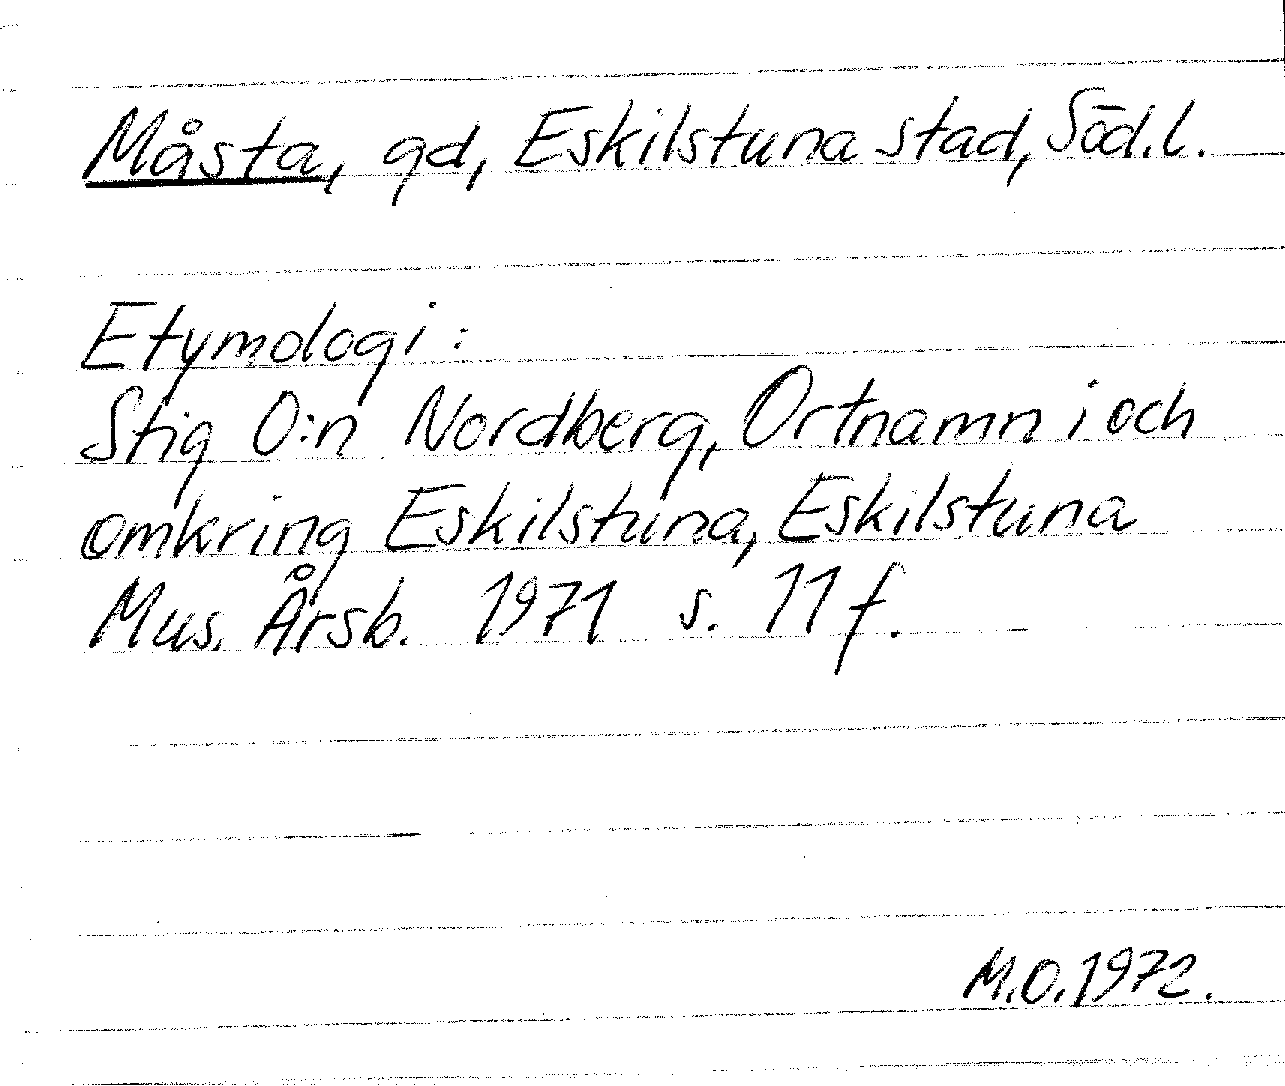 Måsta, gd, Eskilstuna stad, Söd.l.
Etymologi:
Stig O:n Nordberg, Ortnamn i och
omkring Eskilstuna, Eskilstuna
Mus. Årsb. 1971 s. 11 f.
M.O. 1972.